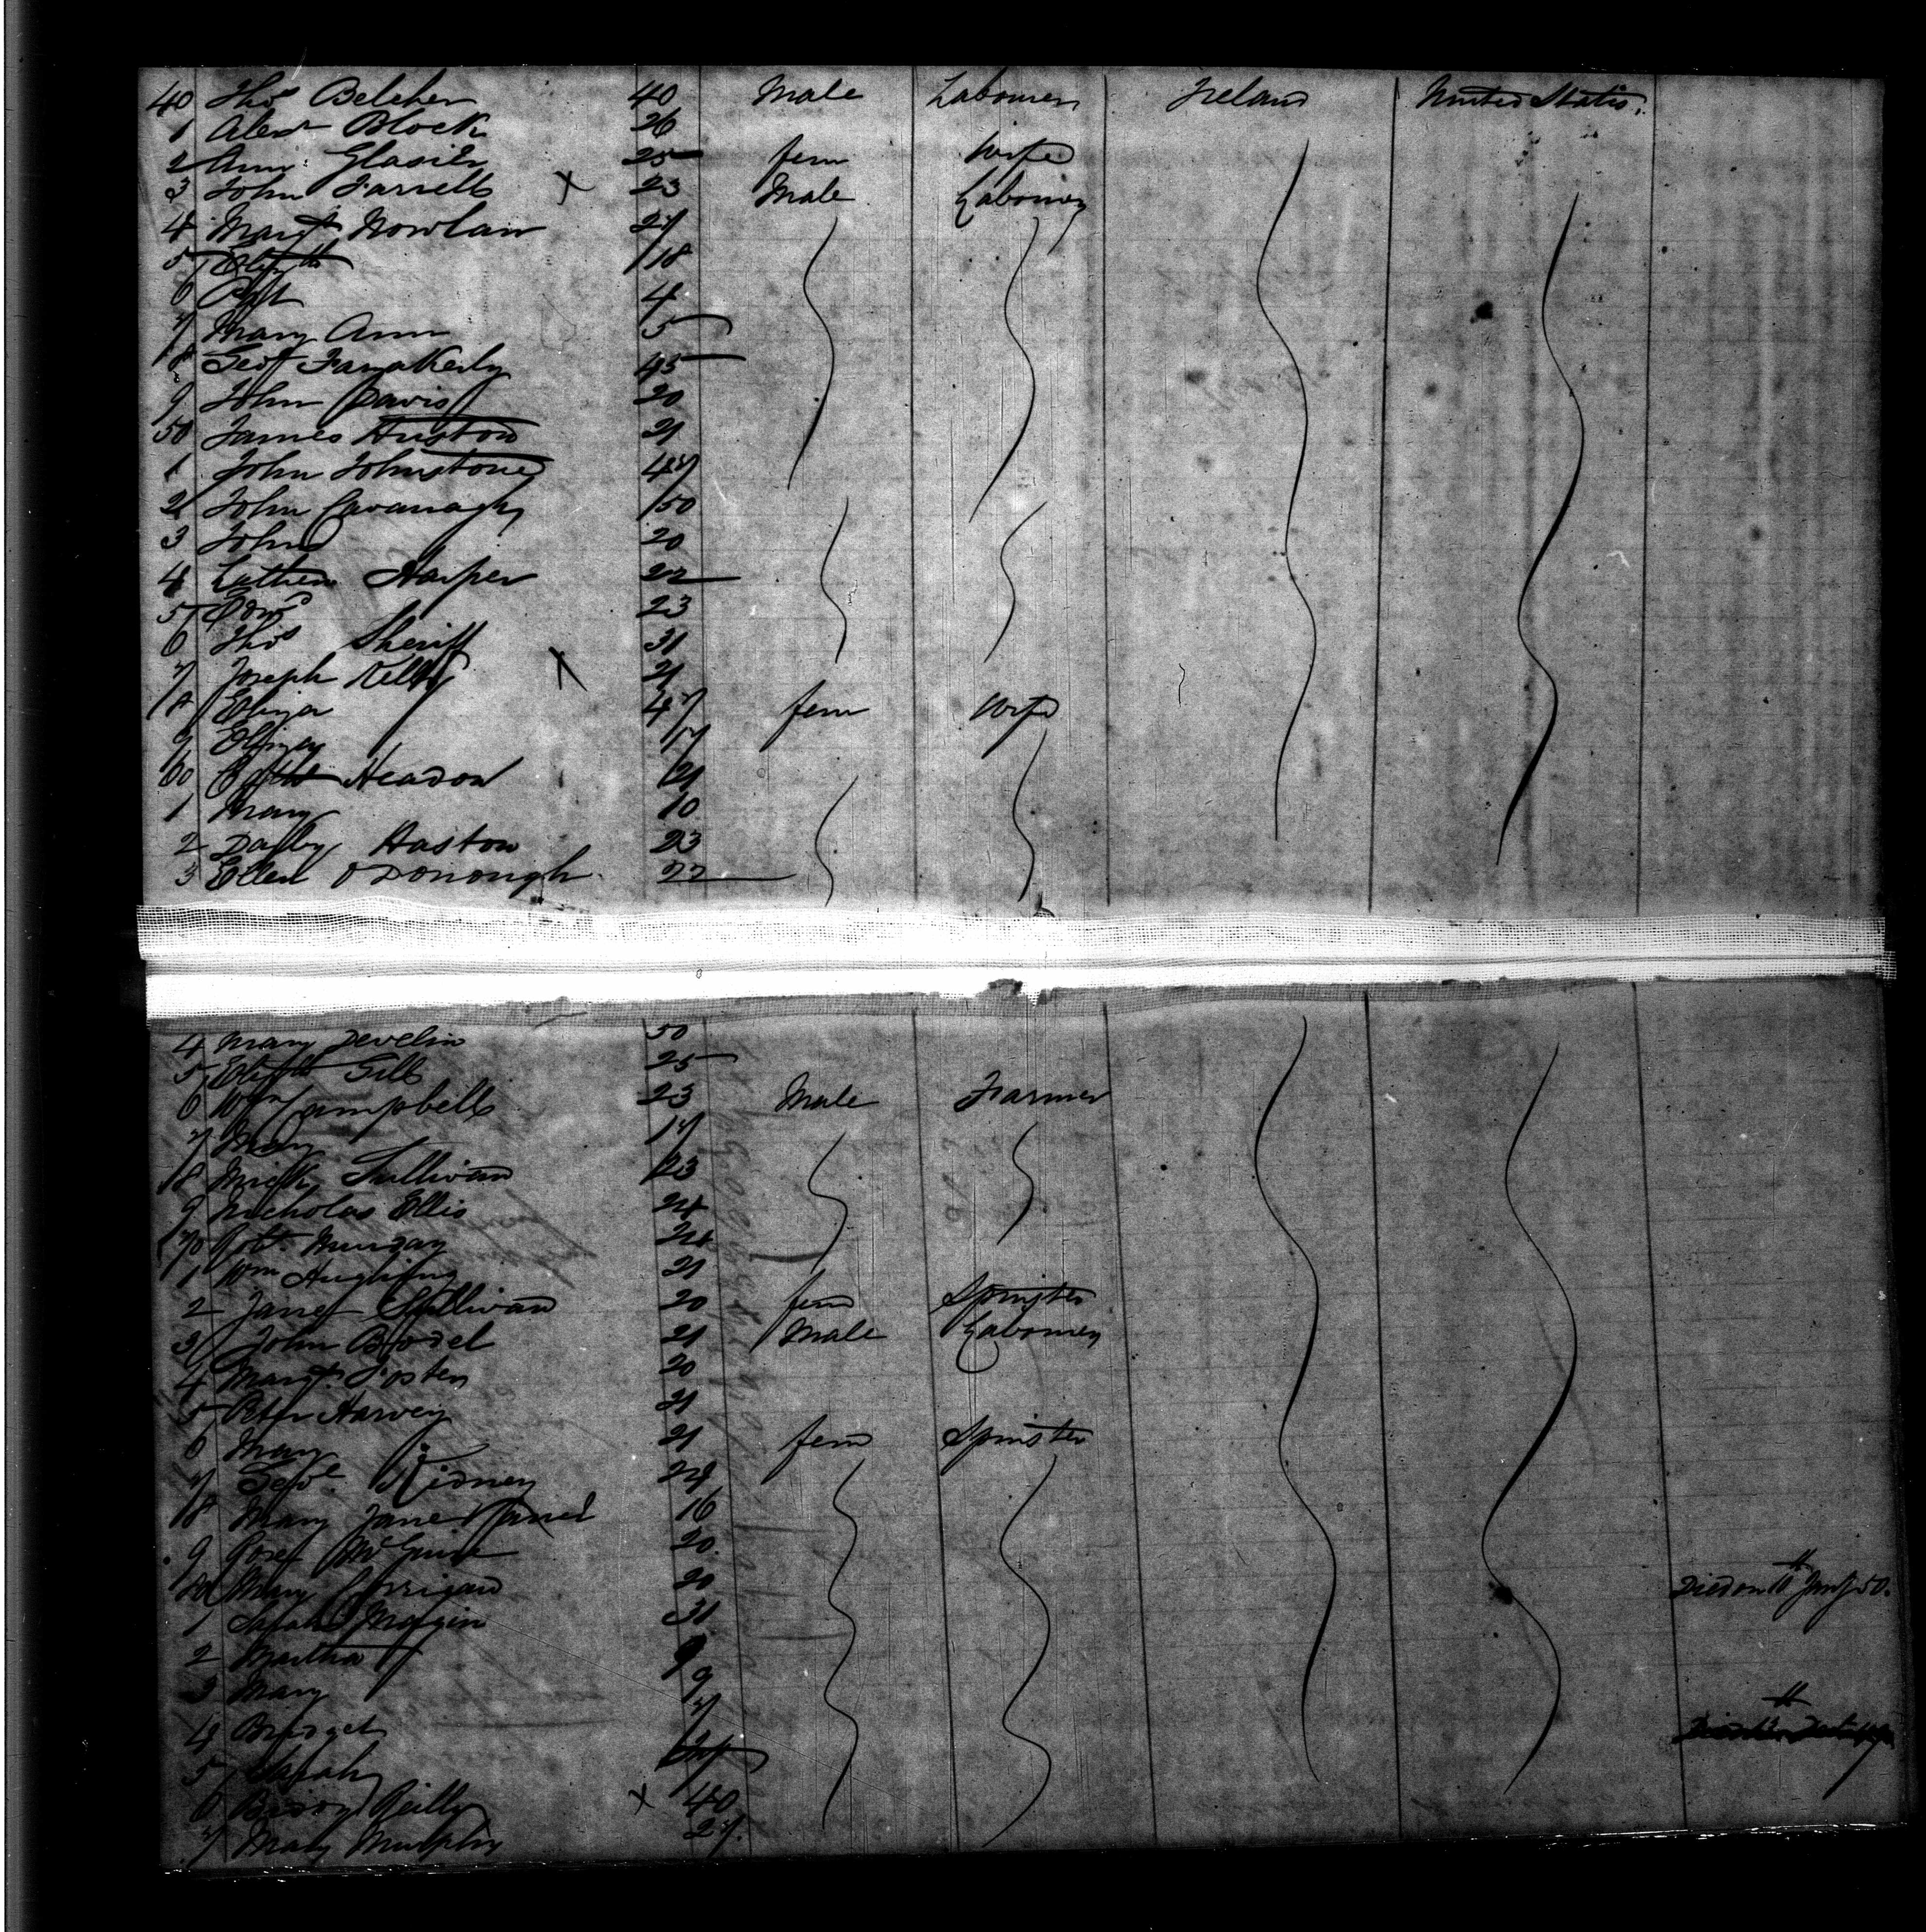 40 Thos Belcher 40 Male Labourer Ireland United States
1 Alexr Block 26
2 Ann Glasier 25 fem Wife
3 John Farrell x 23 Male Labourer
4 Margt Nowlan 27
5 Elizth 18
6 4
7 Mary Ann 5
8 Geo 45
9 John Davis 20
50 James Huston 21
1 John Johnstone 47
2 John Cavanagh 50
3 John 20
4 Harper 22
5 Edwd 23
6 Thos Sheriff 31
7 Joseph Kelly x 21
8 Eliza 47 fem Wife
9 17
60 Headon 21
1 Mary 10
2 Darby Haston 23
3 Ellen O Donough 22
4 Mary Develin 50
5 Elizth Gill 25
6 Wm Campbell 23 Male Farmer
7 Mary 17
8 Mick Sullivan 23
9 Nicholas Ellis 24
70 Robt. Murray 24
1 Wm 21
2 Janet Sullivan 20 fem Spinster
3 John 21 Male Labourer
4 Margt. Foster 20
5 Peter Harvey 21
6 Mary 21 fem Spinster
7 Kidney 24
8 Mary Jane 16
9 McGuire 20
80 Mary Corrigan 20 Died on
1 Sarah 31
2 Martha 9
3 Mary 9
4 Bridget 7
5 Sarah
6 Biddy Reilly x 40
7 Mary Murphy 27